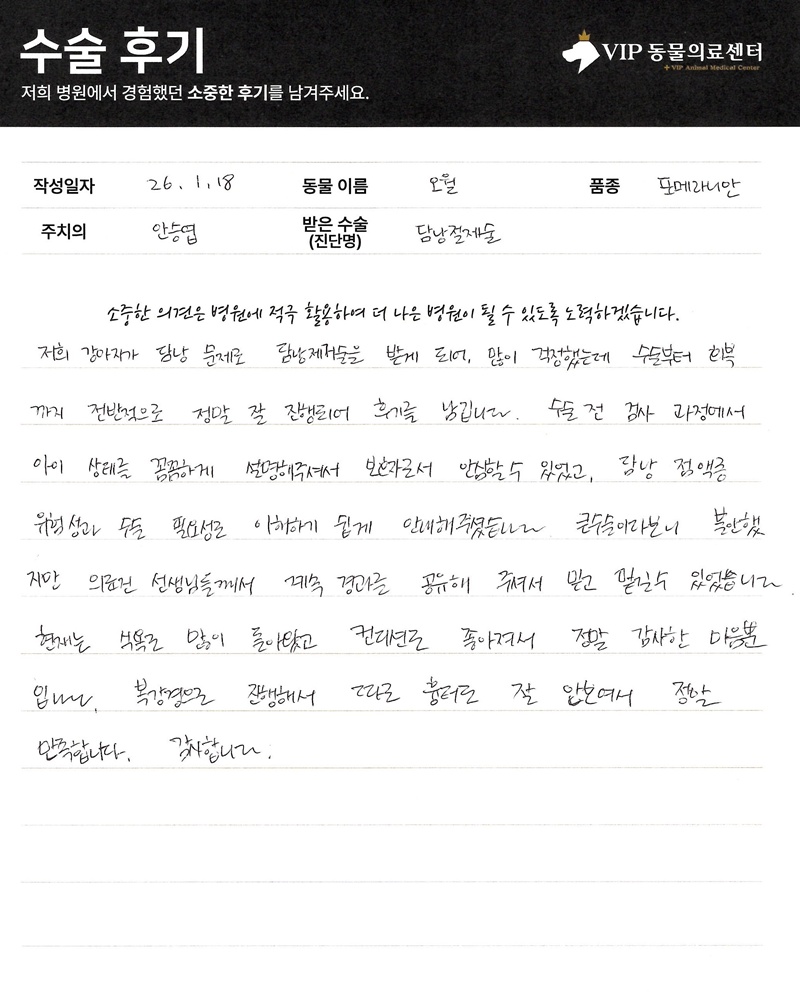 수술 후기
VIP 동물의료센터
VIP Animal Medical Center
저희 병원에서 경험했던 소중한 후기를 남겨주세요.
작성일자 26. 1. 18 동물 이름 오월 품종 포메라니안
주치의 안승엽 받은 수술 담낭절제술
(진단명)
소중한 의견은 병원에 적극 활용하여 더 나은 병원이 될 수 있도록 노력하겠습니다.
저희 강아지가 담낭 문제로 담낭제거술을 받게 되어, 많이 걱정했는데 수술부터 회복
까지 전반적으로 정말 잘 진행되어 후기를 남깁니다. 수술 전 검사 과정에서
아이 상태를 꼼꼼하게 설명해주셔서 보호자로서 안심할 수 있었고, 담낭 점액종
위험성과 수술 필요성을 이해하기 쉽게 안내해주셨습니다 큰수술이다보니 불안했
지만 의료진 선생님들께서 계속 경과를 공유해 주셔서 믿고 맡길수 있었습니다.
현재는 식욕도 많이 돌아왔고 컨디션도 좋아져서 정말 감사한 마음뿐
입니다. 복강경으로 진행해서 따로 흉터도 잘 안보여서 정말
만족합니다. 감사합니다.